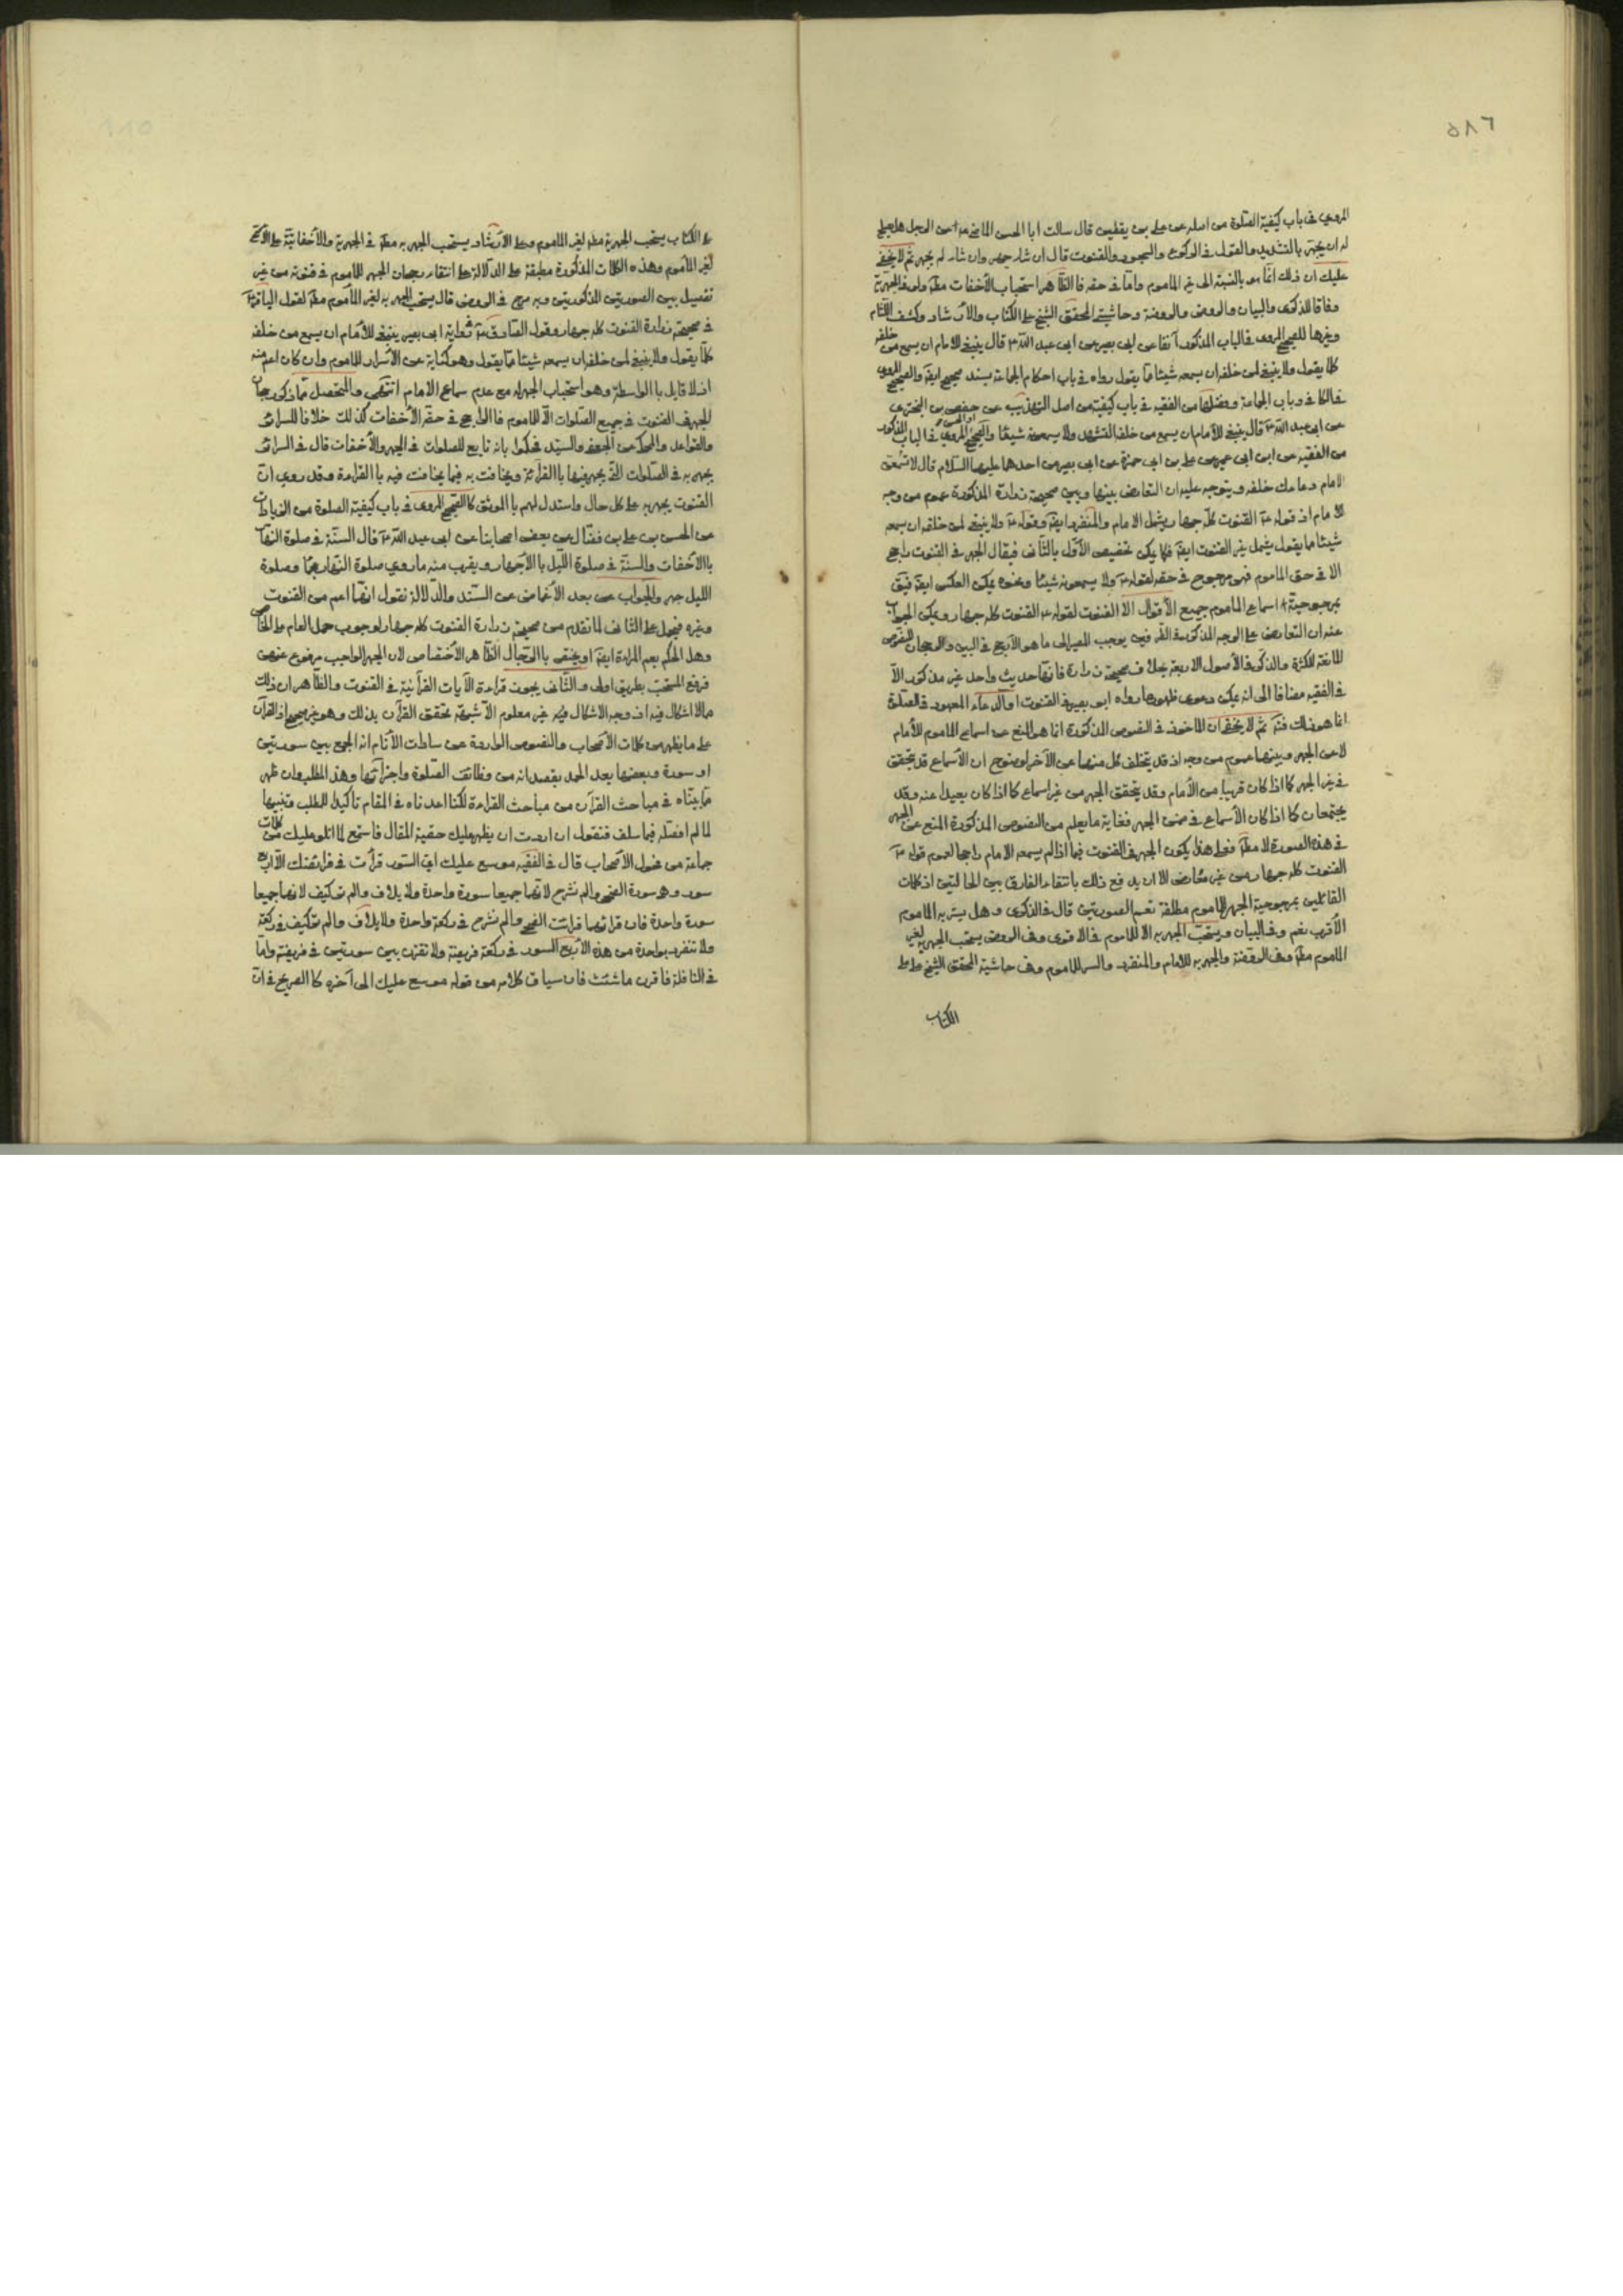 ٥٨٦
المروي في باب كيفية الصلوة من اصله عن علي بن يقطين قال سالت ابا الحسن الماضي ع عن الرجل هل يصلح
له ان يجهر بالتشهد والقول في الركوع والسجود والقنوت قال ان شاء جهر وان شاء لم يجهر ثم لا يخفى
عليك ان ذلك انما هو بالنسبة الى غير الماموم واما في حقه فالظاهر استحباب الأخفات مطلقا ولو في الجهرية
وفاقا للذكرى والبيان والروض والروضة وحاشيتي المحقق الشيخ علي الكتاب والأرشاد وكشف اللثام
وغيرها للصحيح المروي في الباب المذكور آنفا عن ابي بصير عن ابي عبد الله ع قال ينبغي للامام ان يسمع من خلفه
كلما يقول ولا ينبغي لمن خلفه ان يسمعه شيئا مما يقول رواه في باب احكام الجماعة بسند صحيح ايضا والصحيح المروي
في الكافي وباب الجماعة وفضلها من الفقيه في باب كيفية من اصل التهذيب عن حفص بن البختري
عن ابي عبد الله ع قال ينبغي للأمام ان يسمع من خلفه التشهد ولا يسمعونه شيئا والصحيح المروي في الباب المذكور
من الفقيه عن ابن ابي عمير عن علي بن ابي حمزة عن ابي بصير عن احدهما عليهما السلام قال لا تسمعن
الامام دعاءك خلفه ويتوجه عليه ان التعارض بينها وبين صحيحة زرارة المذكورة عموم من وجه
لا مام اذ قوله ع القنوت كله جهار يشمل الامام والمنفرد ايضا وقوله ع ولا ينبغي لمن خلفه ان يسمعه
شيئا مما يقول يشمل غير القنوت ايضا فكما يمكن تخصيص الأول بالثاني فيقال الجهر في القنوت راجح
الا في حق الماموم فهو مرجوح في حقه لقوله ع ولا يسمعونه شيئا ونحوه يمكن العكس ايضا فيق
بمرجوحية اسماع الماموم جميع الأقوال الا القنوت لقوله ع القنوت كله جهار ويمكن الجواب
عنه ان التعارض على الوجه المذكور يوجب المصير الى ما هو الأرجح في البين والرجحان للنصوص
المانعة للكثرة والذكر في الأصول الاربعة بخلاف صحيحة زرارة فانها حديث واحد غير مذكور الا
في الفقيه مضافا الى انه يمكن دعوى ظهور ما رواه ابو بصير في القنوت اذ الدعاء المعهود في الصلوة
انما هو ذلك ثم لا يخفى ان الماخوذ في النصوص المذكورة انما هو المنع عن اسماع الماموم للأمام
لا عن الجهر وبينهما عموم من وجه اذ قد يتخلف كل منهما عن الآخر لوضوح ان الأسماع قد يتحقق
في غير الجهر كما اذا كان قريبا من الأمام وقد يتحقق الجهر من غير اسماع كما اذا كان بعيدا عنه وقد
يجتمعان كما اذا كان الأسماع في ضمن الجهر فغاية ما يعلم من النصوص المذكورة المنع عن الجهر
في هذه الصورة لا مطلقا فعلى هذا يكون الجهر في القنوت فيما اذا لم يسمعه الامام راجحا لعموم قوله ع
القنوت كله جهار من غير معارض الا ان يدفع ذلك بانتفاء الفارق بين الحالتين اذ كلمات
القائلين بمرجوحية الجهر للماموم مطلقة تعم الصورتين قال في الذكرى وهل يسر به الماموم
الأقرب نعم وفي البيان ويستحب الجهر به الا للماموم في الاقوى وفي الروض يستحب الجهر به لغير
الماموم مطلقا وفي الروضة والجهر به للامام والمنفرد والسر للماموم وفي حاشية المحقق الشيخ علي على
الكتاب
على الكتاب يستحب الجهر به مطلقا لغير الماموم وعلى الأرشاد يستحب الجهر به مطلقا في الجهرية والأخفاتية على الأصح
لغير المأموم وهذه الكلمات المذكورة مطبقة على الدلالة على انتفاء رجحان الجهر للماموم في قنوته من غير
تفصيل بين الصورتين المذكورتين وبه صرح في الروض قال يستحب الجهر به لغير المأموم مطلقا لقول الباقر ع
في صحيحة زرارة القنوت كله جهار وقول الصادق ع في رواية ابي بصير ينبغي للأمام ان يسمع من خلفه
كلما يقول ولا ينبغي لمن خلفه ان يسمعه شيئا مما يقول وهو كناية عن الأسرار للماموم وان كان اعم منه
اذ لا قايل بالواسطة وهو استحباب الجهر له مع عدم سماع الامام انتهى والمتحصل مما ذكر رجحان
الجهر في القنوت في جميع الصلوات الا للماموم فالراجح في حقه الأخفات كذلك خلافا للسرائر
والقواعد والمحكي عن الجعفي والسيد فحكموا بانه تابع للصلوات في الجهر والأخفات قال في السرائر
يجهر به في الصلوات التي يجهر فيها بالقرائة ويخافت به فيما يخافت فيه بالقراءة وقد روي ان
القنوت يجهر به على كل حال واستدل لهم بالموثق كالصحيح المروي في باب كيفية الصلوة من الزيادات
عن الحسن بن علي بن فضال عن بعض اصحابنا عن ابي عبد الله ع قال السنة في صلوة النهار
بالأخفات والسنة في صلوة الليل بالأجهار ويقرب منه ما روي صلوة النهار عجماء وصلوة
الليل جهر والجواب عن بعد الأغماض عن السند والدلالة نقول انها اعم من القنوت
وغيره فيحمل على الثاني لما تقدم من صحيحة زرارة القنوت كله جهار لوجوب حمل العام على الخاص
وهل الحكم يعم المراة ايضا او يختص بالرجال الظاهر الأختصاص لان الجهر الواجب مرفوع عنهن
فرفع المستحب بطريق اولى والثاني يجوز قراءة الآيات القرآنية في القنوت والظاهر ان ذلك
مما لا اشكال فيه اذ وجه الاشكال فيه غير معلوم الا شبهة تحقق القرآن بذلك وهو غير صحيح اذ القران
على ما يظهر من كلمات الأصحاب والنصوص الواردة عن سادات الأنام انه الجمع بين سورتين
او سورة وبعضها بعد الحمد بقصد انه من وظائف الصلوة واجزائها وهذا المطلب وان ظهر
مما بيناه في مباحث القرآن من مباحث القراءة لكنا اعدناه في المقام تاكيدا للطلب وتنبيها
لما لم افصله فيما سلف فنقول ان اردت ان يظهر عليك حقيقة المقال فاستمع لما اتلو عليك من كلمات
جماعة من فحول الأصحاب قال في الفقيه موسع عليك اي السور قرأت في فرائضك الا اربع
سور وهي سورة الضحى والم نشرح لانهما جميعا سورة واحدة ولايلاف والم تر كيف لانهما جميعا
سورة واحدة فان قرأتهما قرأت الضحى والم نشرح في ركعة واحدة ولايلاف والم تر كيف في ركعة
ولا تنفرد بواحدة من هذه الأربع السور في ركعة فريضة ولا تقرن بين سورتين في فريضة واما
في النافلة فاقرن ما شئت فان سياق كلامه من قوله موسع عليك الى آخره كالصريح في ان